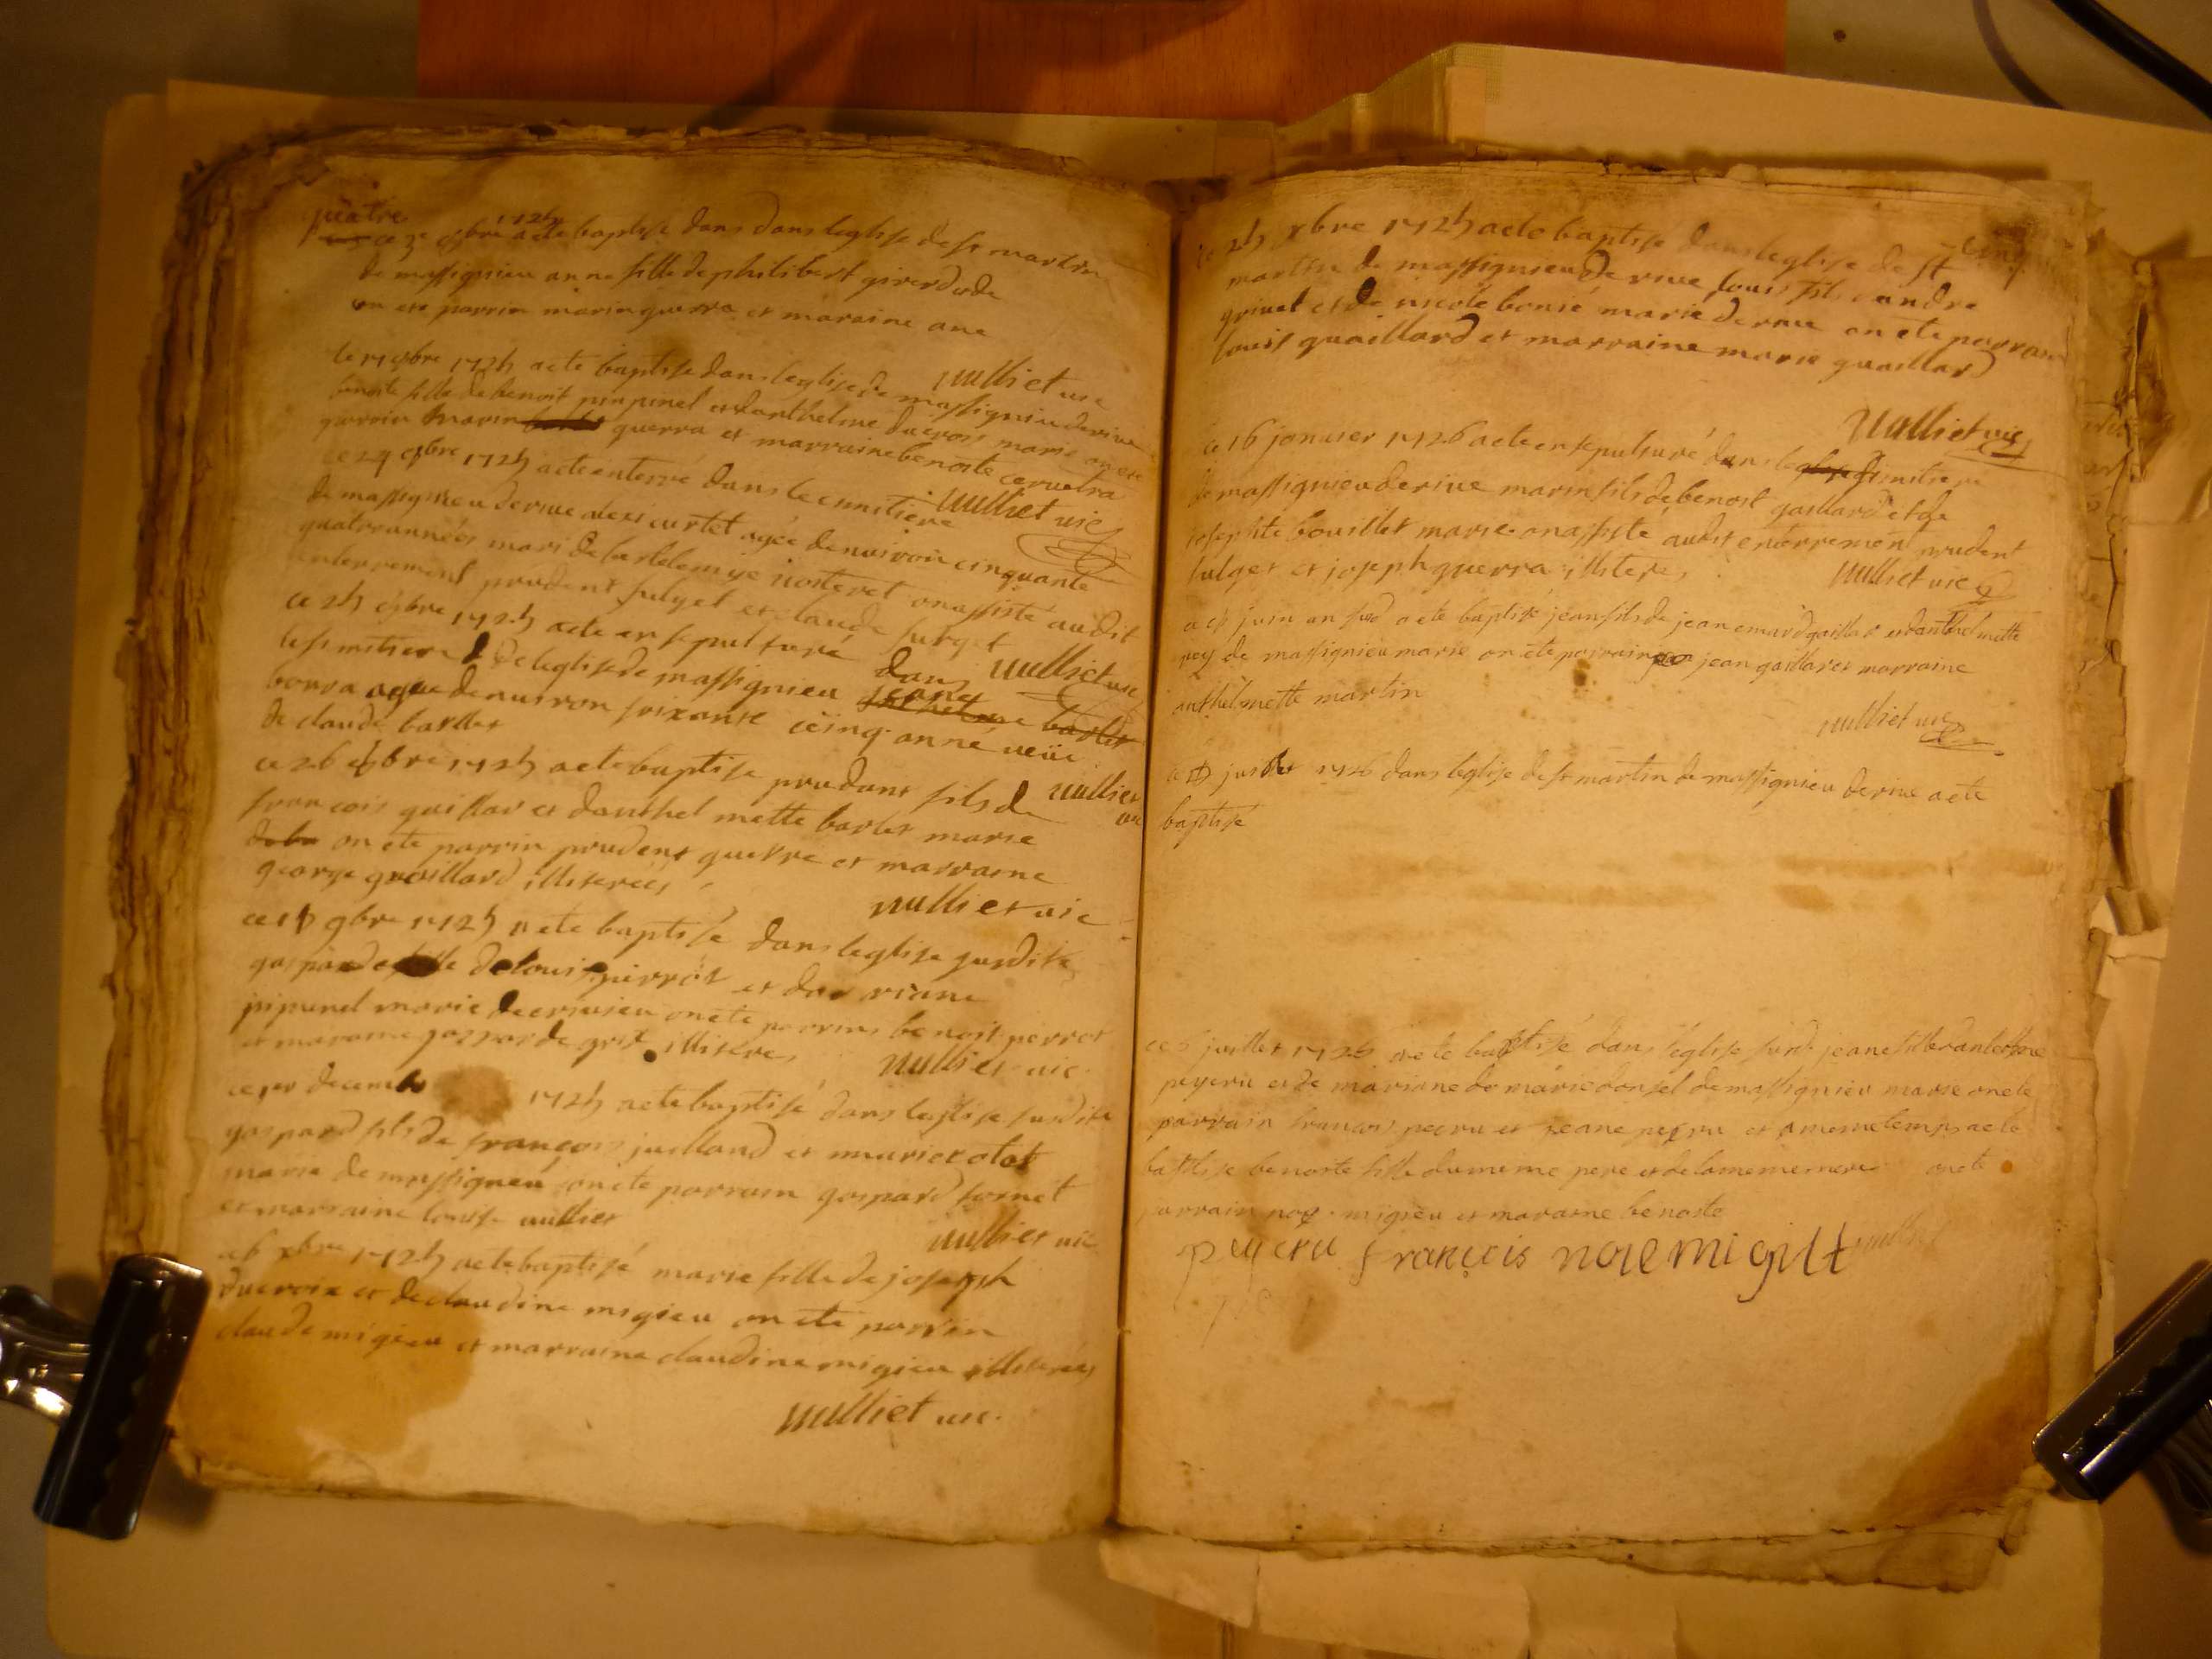 quatre
ce 3e 1725 a ete baptise dans dans leglise de st martin
de massignieu anne fille de philibert
on ete parrin marin guerra et maraine ane
nulliet vic
le 17 1725 a ete baptise dans leglise de massignieu de rive
benoite fille de benoit pinpinel et danthelme ducrois marie on ete
parrin marin guerra et marraine benoite
nulliet vic
ce 29 1725 a ete enterré dans le cimitiere
de massignieu de rive alexi curtet agée denviron cinquante
quatre années mari de bartelemye on assisté audit
enterrement prudent fulget et claude surget
nulliet vic
ce 25 1725 a ete ensepulturé dans
le simitiere de leglise de massignieu jeane
boura agée denviron soixante ceinq anné veüe
de claude barlet
nulliet vic
ce 26 1725 a ete baptise prudant fils de
francois guillar et danthelmette barlet marie
on ete parrin prudent guerre et marraine
george guaillard illiterées
nulliet vic
ce 9bre 1725 a ete baptisé dans leglise susdite
gasparde fille de louis pirrot et de mariane
pipunel marie de on ete parrins benoit perrot
et maraine gasparde illiteres
nulliet vic
ce 1er decembre 1725 a ete baptisé dans leglise susdite
gaspard fils de françois juilland et marie
marie de massigneu on ete parrain gaspard sornet
et marraine louise nulliet
nulliet vic
ce 6 xbre 1725 a ete baptisé marie fille de joseph
ducroix et de claudine migieu on ete parrin
claude migieu et marraine claudine migieu illiterées
nulliet vic.
cinq
ce 25 xbre 1725 a ete baptisé dans leglise de st
martin de massignieu de rive louis fils dandre
grivel et de nicole bonsé marié de rive on ete parrain
louis guaillard et marraine marie guaillard
nulliet vic
ce 16 janvier 1726 a ete ensepulturé dans le simitiere
de massignieu de rive marin fils de benoit gaillard et de
josephte bouillet marie on assisté audit enterrement prudent
fulget et joseph guerra illiteres
nulliet vic
juin an susd a ete baptisé jean fils de jean emard gaillar et danthelmette
rey de massignieu marie on ete parrain jean gaillar et marraine
anthelmette martin
nulliet vic
ce 1726 dans leglise de st martin de massignieu de rive a ete
baptise
ce 5 juillet 1726 a ete baptisé dans leglise susd jeane fille danthelme
peyeru et de mariane de marie donsel de massignieu marie on ete
parrain francois peeru et jeane peyru et a meme temps a ete
baptise benoite fille du meme pere et de la meme mere on ete
parrain noy migieu et maraine benoite
peyeru francois noie migiu